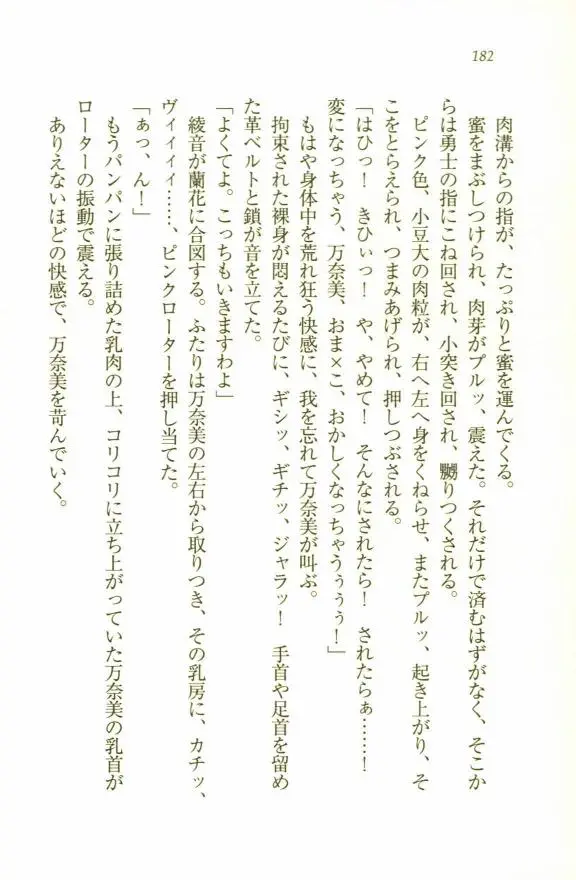 182
肉溝からの指が、たっぷりと蜜を運んでくる。
蜜をまぶしつけられ、肉芽がプルッ、震えた。それだけで済むはずがなく、そこか
らは勇士の指にこね回され、小突き回され、嬲りつくされる。
ピンク色、小豆大の肉粒が、右へ左へ身をくねらせ、またプルッ、起き上がり、そ
こをとらえられ、つまみあげられ、押しつぶされる。
「はひっ！　きひぃっ！　や、やめて！　そんなにされたら！　されたらぁ……！
変になっちゃう、万奈美、おま×こ、おかしくなっちゃうぅぅぅ！」
もはや身体中を荒れ狂う快感に、我を忘れて万奈美が叫ぶ。
拘束された裸身が悶えるたびに、ギシッ、ギチッ、ジャラッ！　手首や足首を留め
た革ベルトと鎖が音を立てた。
「よくてよ。こっちもいきますわよ」
綾音が蘭花に合図する。ふたりは万奈美の左右から取りつき、その乳房に、カチッ、
ヴィィィィ……、ピンクローターを押し当てた。
「ぁっ、ん！」
もうパンパンに張り詰めた乳肉の上、コリコリに立ち上がっていた万奈美の乳首が
ローターの振動で震える。
ありえないほどの快感で、万奈美を苛んでいく。